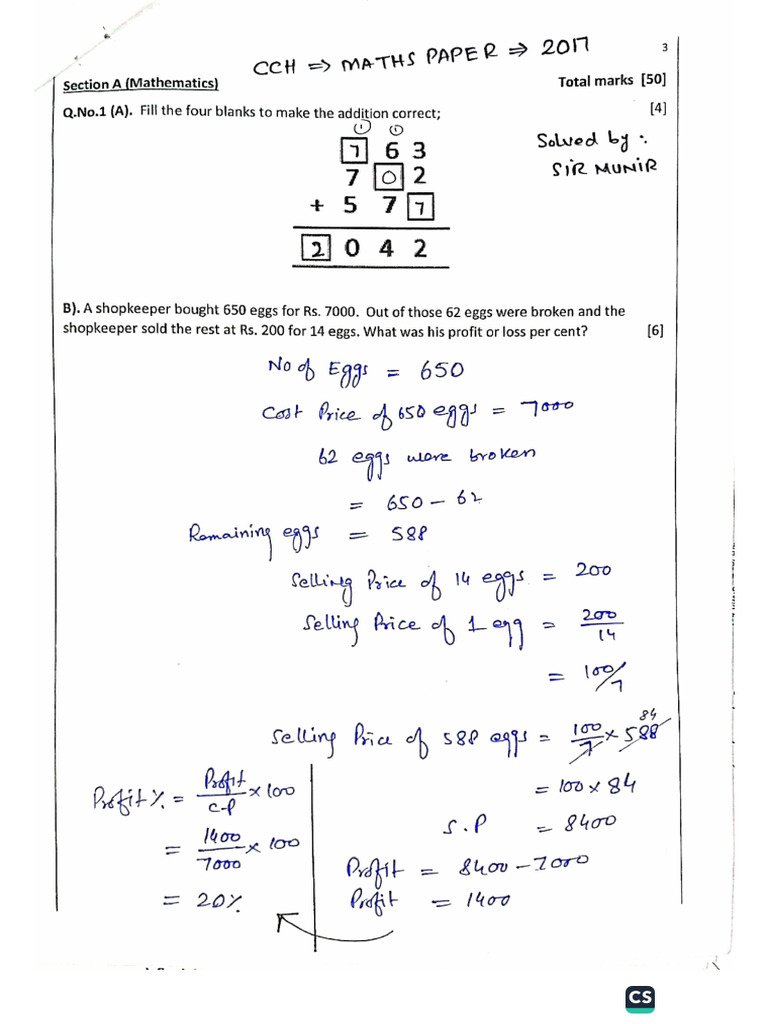 CCH ⇒ MATHS PAPER ⇒ 2017
3
Section A (Mathematics) Total marks [50]
Q.No.1 (A). Fill the four blanks to make the addition correct; [4]
① ①
7 6 3
7 0 2
+ 5 7 7
2 0 4 2
Solved by :
SIR MUNIR
B). A shopkeeper bought 650 eggs for Rs. 7000. Out of those 62 eggs were broken and the
shopkeeper sold the rest at Rs. 200 for 14 eggs. What was his profit or loss per cent? [6]
No of Eggs = 650
Cost Price of 650 eggs = 7000
62 eggs were broken
= 650 - 62
Remaining eggs = 588
Selling Price of 14 eggs = 200
Selling Price of 1 egg = 200/14
= 100/7
Selling Price of 588 eggs = 100/7 × 588 84
= 100 × 84
S.P = 8400
Profit = 8400 - 7000
Profit = 1400
Profit % = Profit/C.P × 100
= 1400/7000 × 100
= 20%
CS